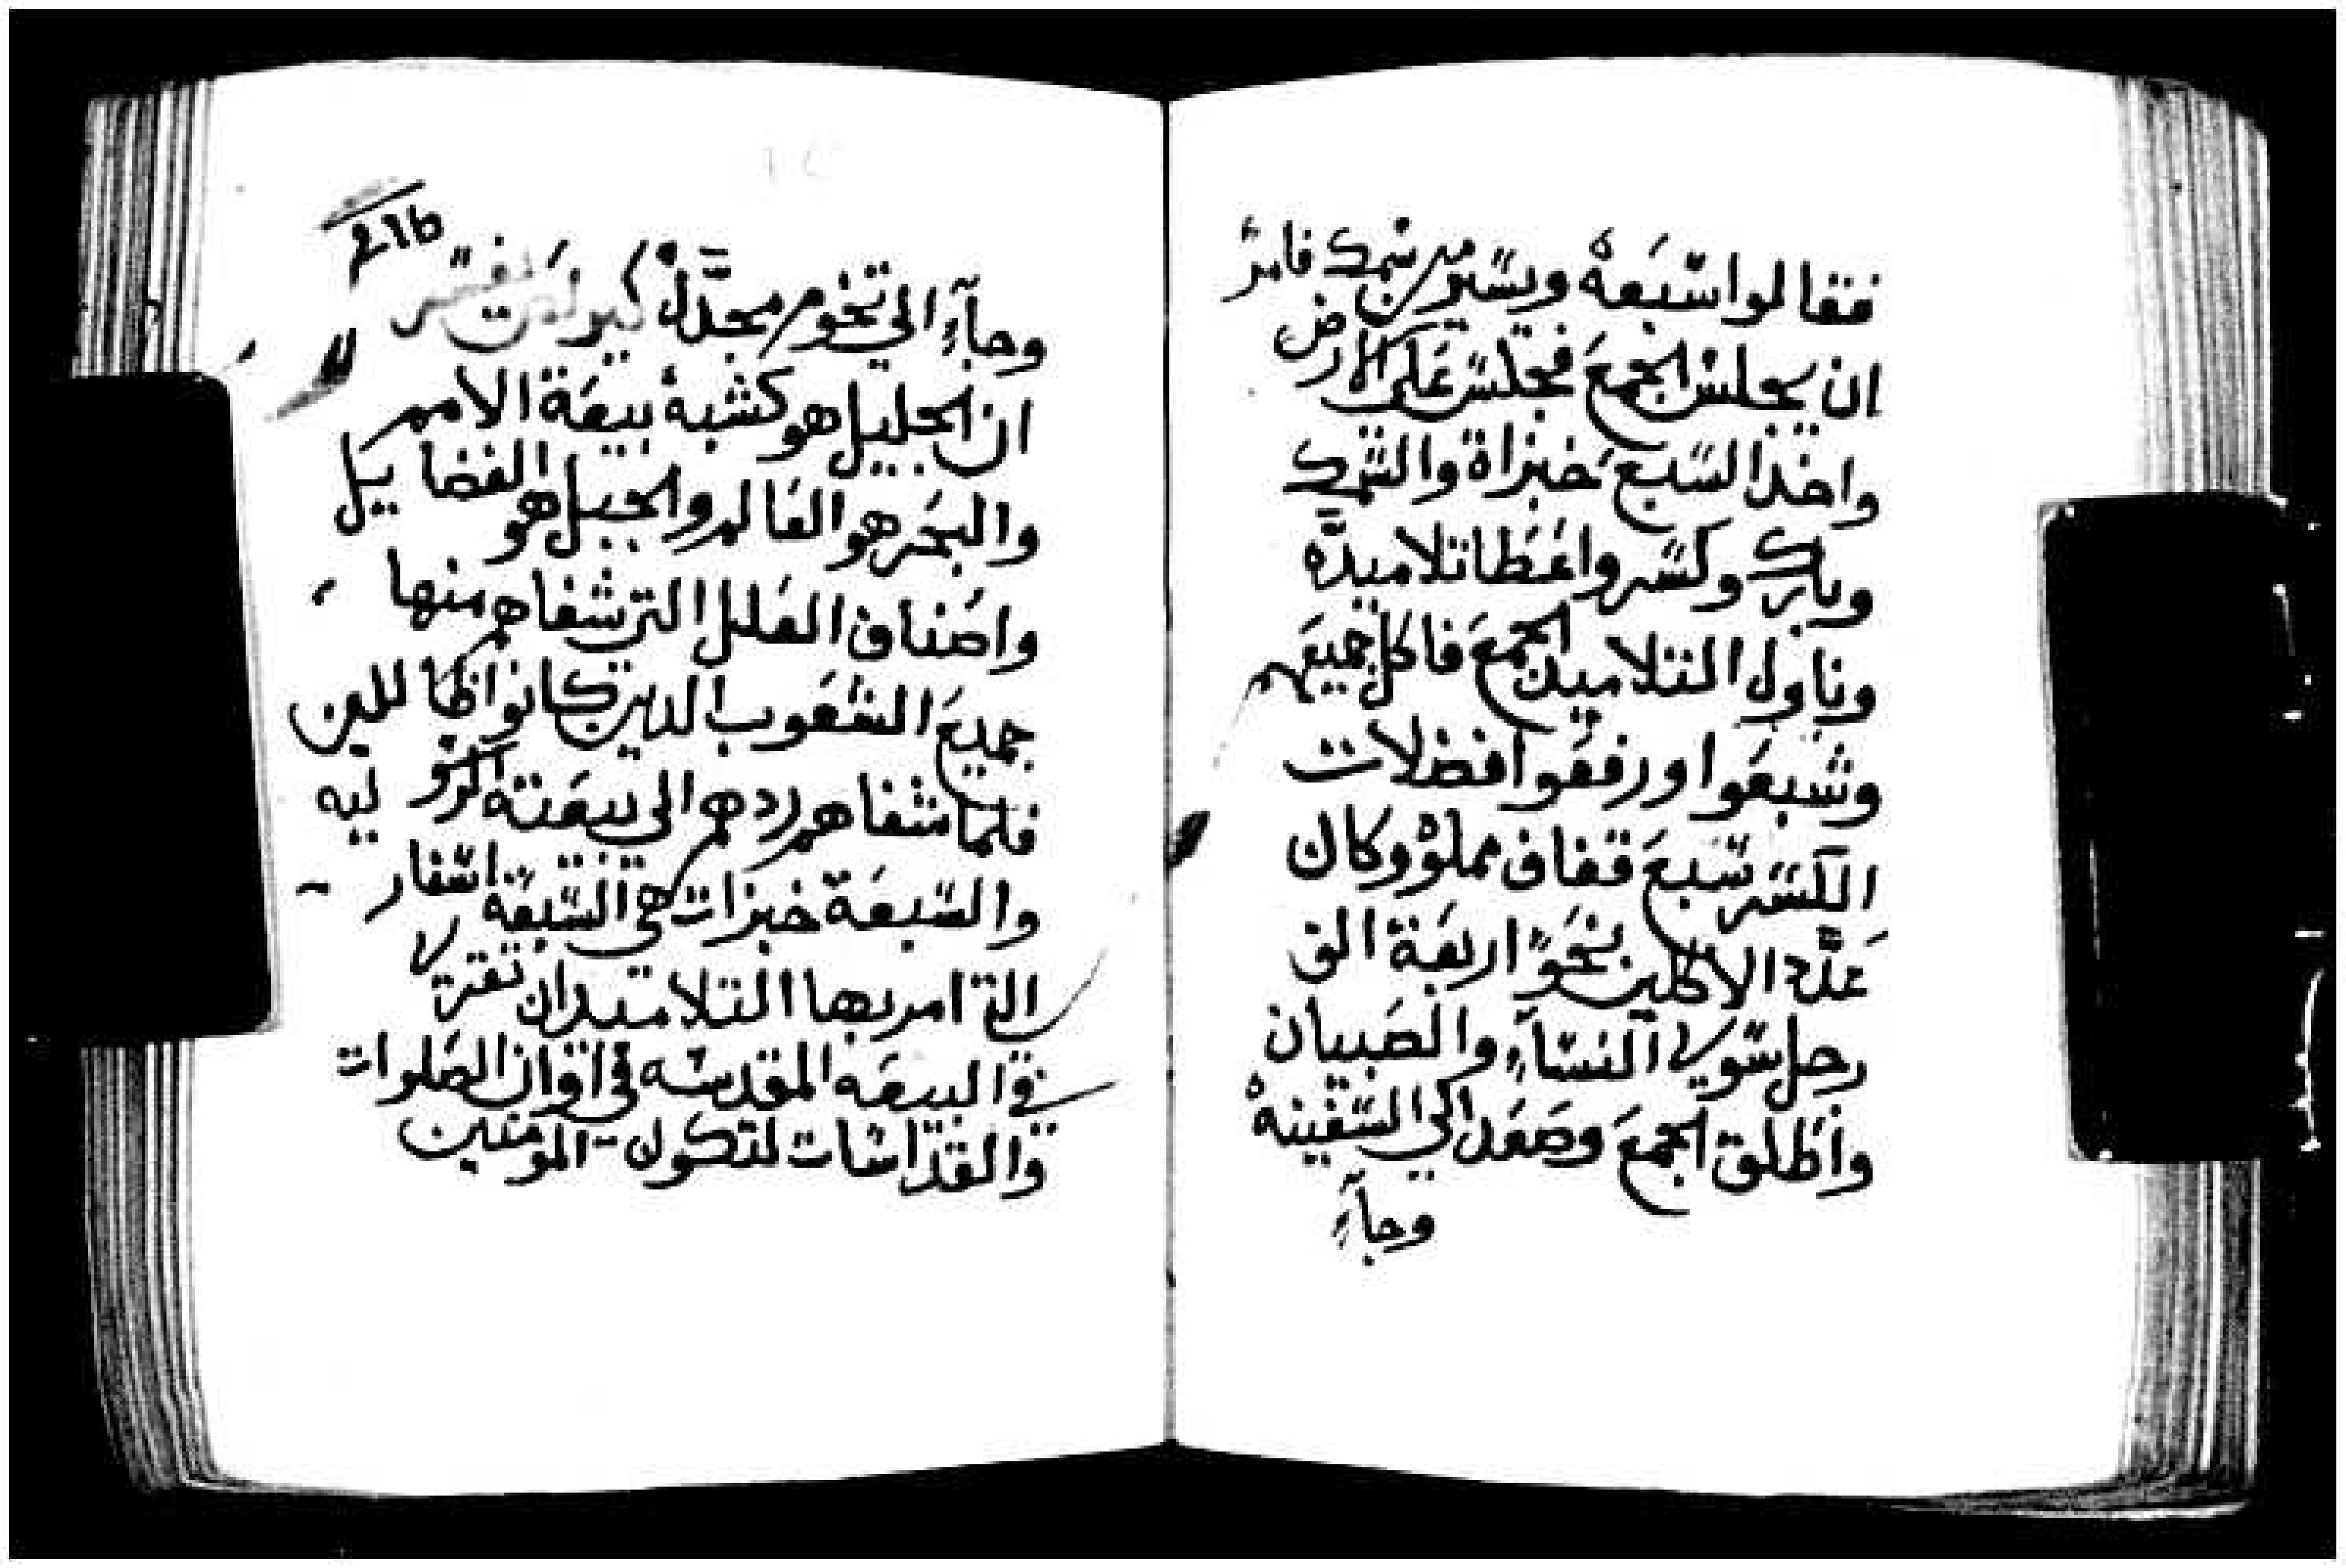 فقالوا سبعه ويسير من سمك فامر
ان يجلس الجمع فجلس على الارض
واخذ السبع خبزاة والسمك
وبارك وكسر واعطا تلاميذه
وناول التلاميذ الجمع فاكل جميعهم
وشبعوا ورفعوا فضلات
الكسر سبع قفاف مملوه وكان
عدد الاكلين نحو اربعة الف
رجل سوى النساء والصبيان
واطلق الجمع وصعد الى السفينه
وجاء
وجاء الى تخوم مجدل
ان الجليل هو كشبه بيعة الامم
والبحر هو العالم والجبل هو الفضاييل
واصناف العلل التى شفاهم منها
جميع الشعوب الدين كانوا ظاللين
فلما شفاهم ردهم الى بيعته
والسبعة خبزات هى السبعة اسفار
التى امر بها التلاميد ان تقترا
فى البيعه المقدسه فى اوان الصلوات
والقداسات لتكون المومنين